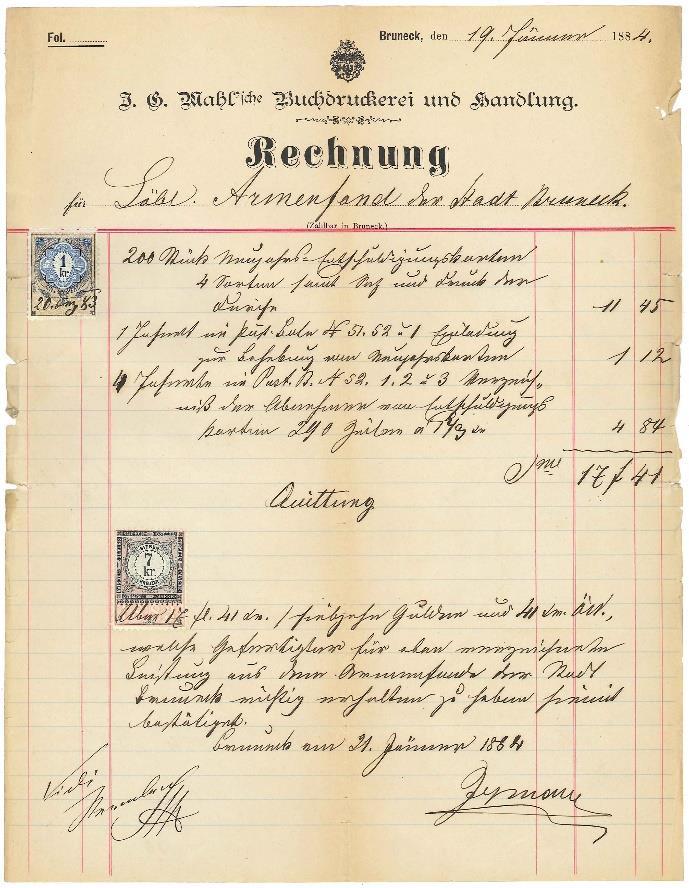 Fol.
Bruneck, den 19. Jänner 1884.
J. G. Mahl'sche Buchdruckerei und Handlung.
Rechnung
für Löbl. Armenfond der Stadt Bruneck.
(Zahlbar in Bruneck.)
1 kr.
20. Dez 83
200 Stück Neujahrs-Entschuldigungskarten
4 Sorten samt Satz und Druck der
11 45
1 Inserat in Pust. Bote N 51. 52 u 1 Einladung
zur Behebung von Neujahrskarten 1 12
4 Inserate in Pust. B. N 52. 1. 2 u 3 Verzeich-
niß der Abnehmer von Entschuldigungs
karten 290 Zeilen a 1 2/3 kr 4 84
17 f 41
Quittung
7 kr.
Über 17 fl. 41 kr. / siebzehn Gulden und 41 kr. Öst.,
welche Gefertigter für oben verzeichnete
Leistung aus dem Armenfonde der Stadt
Bruneck richtig erhalten zu haben hiemit
bestätiget.
Bruneck am 21. Jänner 1884
Vidi